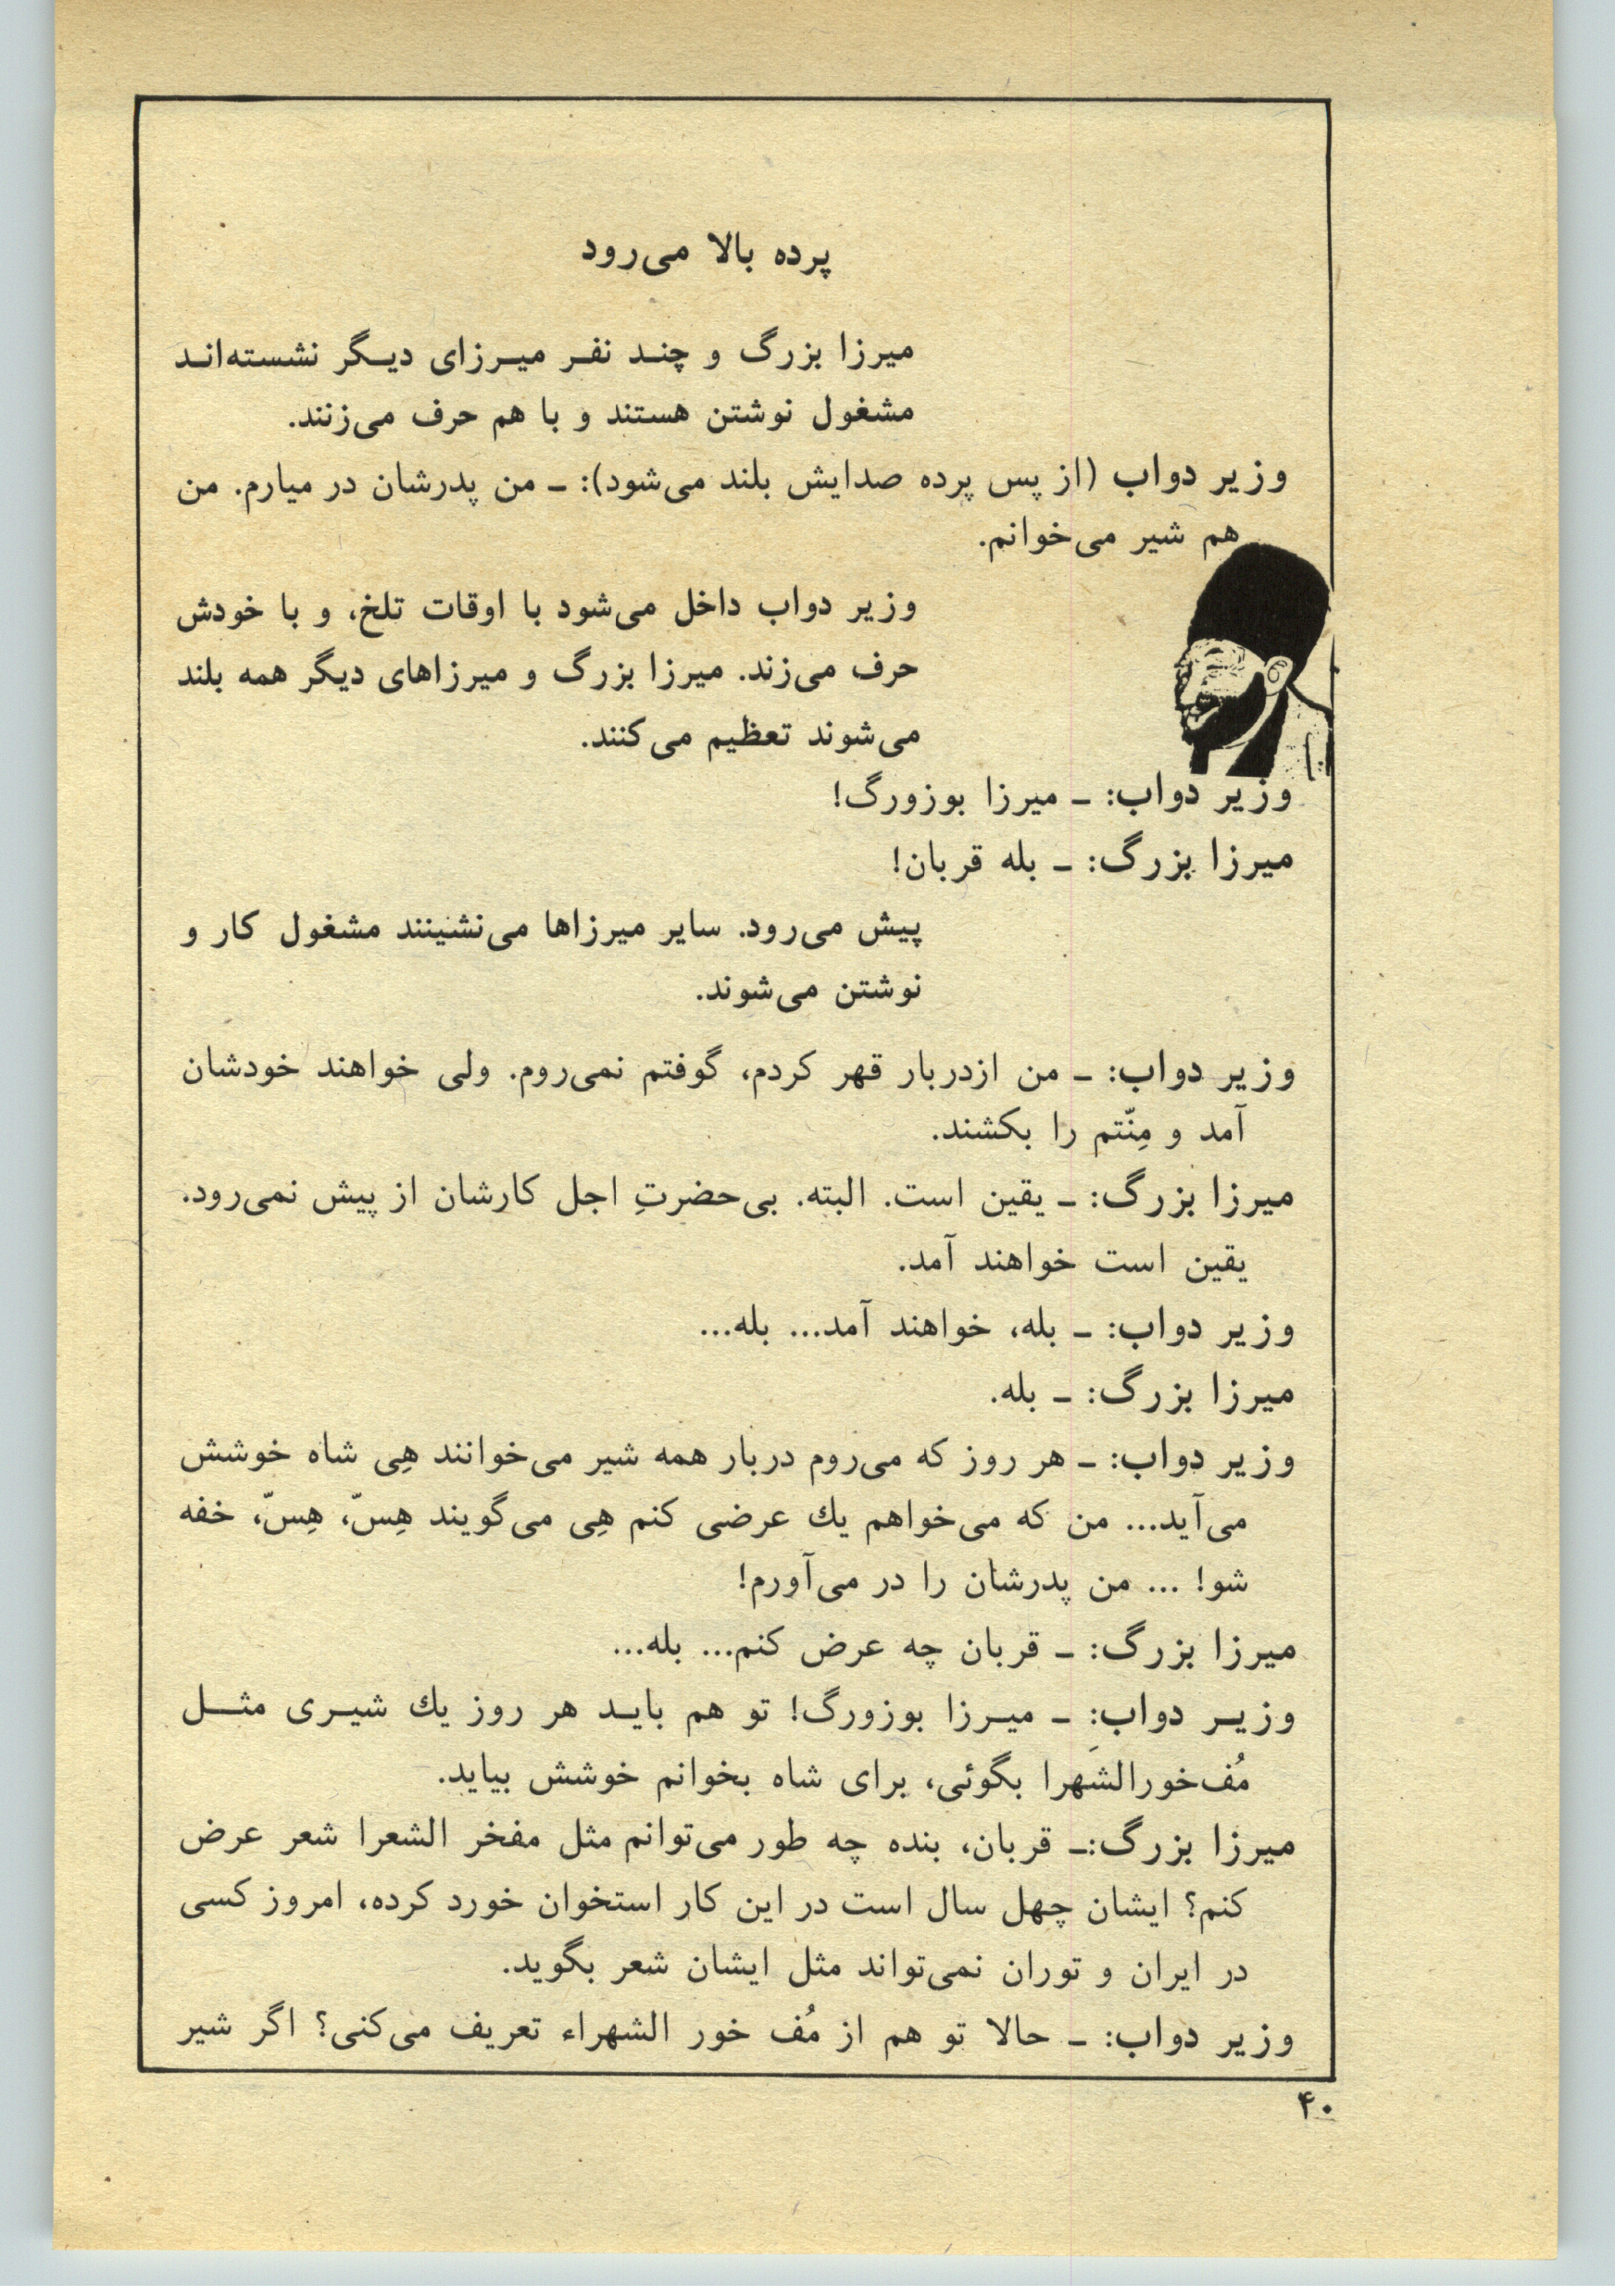 پرده بالا می‌رود
میرزا بزرگ و چند نفر میرزای دیگر نشسته‌اند
مشغول نوشتن هستند و با هم حرف می‌زنند.
وزیر دواب (از پس پرده صدایش بلند می‌شود): ـ من پدرشان در میارم. من
هم شیر می‌خوانم.
وزیر دواب داخل می‌شود با اوقات تلخ، و با خودش
حرف می‌زند. میرزا بزرگ و میرزاهای دیگر همه بلند
می‌شوند تعظیم می‌کنند.
وزیر دواب: ـ میرزا بوزورگ!
میرزا بزرگ: ـ بله قربان!
پیش می‌رود. سایر میرزاها می‌نشینند مشغول کار و
نوشتن می‌شوند.
وزیر دواب: ـ من ازدربار قهر کردم، گوفتم نمی‌روم. ولی خواهند خودشان
آمد و مِنّتم را بکشند.
میرزا بزرگ: ـ یقین است. البته. بی‌حضرتِ اجل کارشان از پیش نمی‌رود.
یقین است خواهند آمد.
وزیر دواب: ـ بله، خواهند آمد... بله...
میرزا بزرگ: ـ بله.
وزیر دواب: ـ هر روز که می‌روم دربار همه شیر می‌خوانند هِی شاه خوشش
می‌آید... من که می‌خواهم یك عرضی کنم هِی می‌گویند هِسّ، هِسّ، خفه
شو! ... من پدرشان را در می‌آورم!
میرزا بزرگ: ـ قربان چه عرض کنم... بله...
وزیر دواب: ـ میرزا بوزورگ! تو هم باید هر روز یك شیری مثل
مُف‌خورالشهرا بگوئی، برای شاه بخوانم خوشش بیاید.
میرزا بزرگ:ـ قربان، بنده چه طور می‌توانم مثل مفخر الشعرا شعر عرض
کنم؟ ایشان چهل سال است در این کار استخوان خورد کرده، امروز کسی
در ایران و توران نمی‌تواند مثل ایشان شعر بگوید.
وزیر دواب: ـ حالا تو هم از مُف خور الشهراء تعریف می‌کنی؟ اگر شیر
۴۰